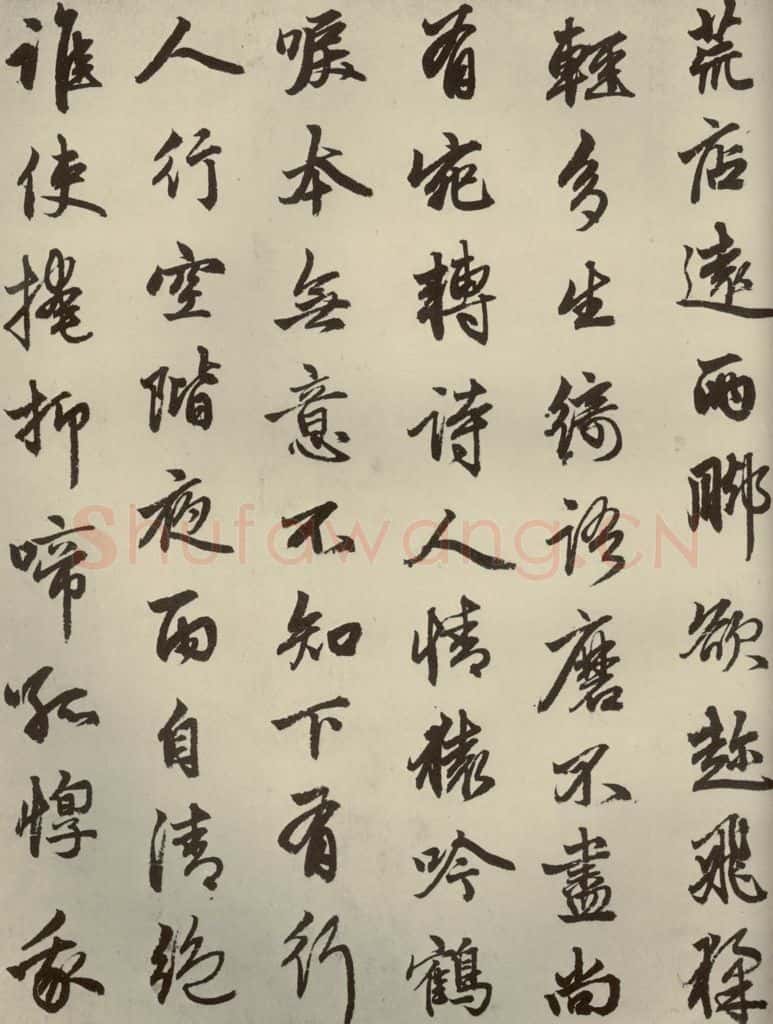 荒店遠兩脚欲趁飛猱
輕多生綺語磨不盡尚
有宛轉詩人情猿吟鶴
唳本無意不知下有行
人行空階夜雨自清絕
誰使掩抑啼孤惸我
Shufawang.CN